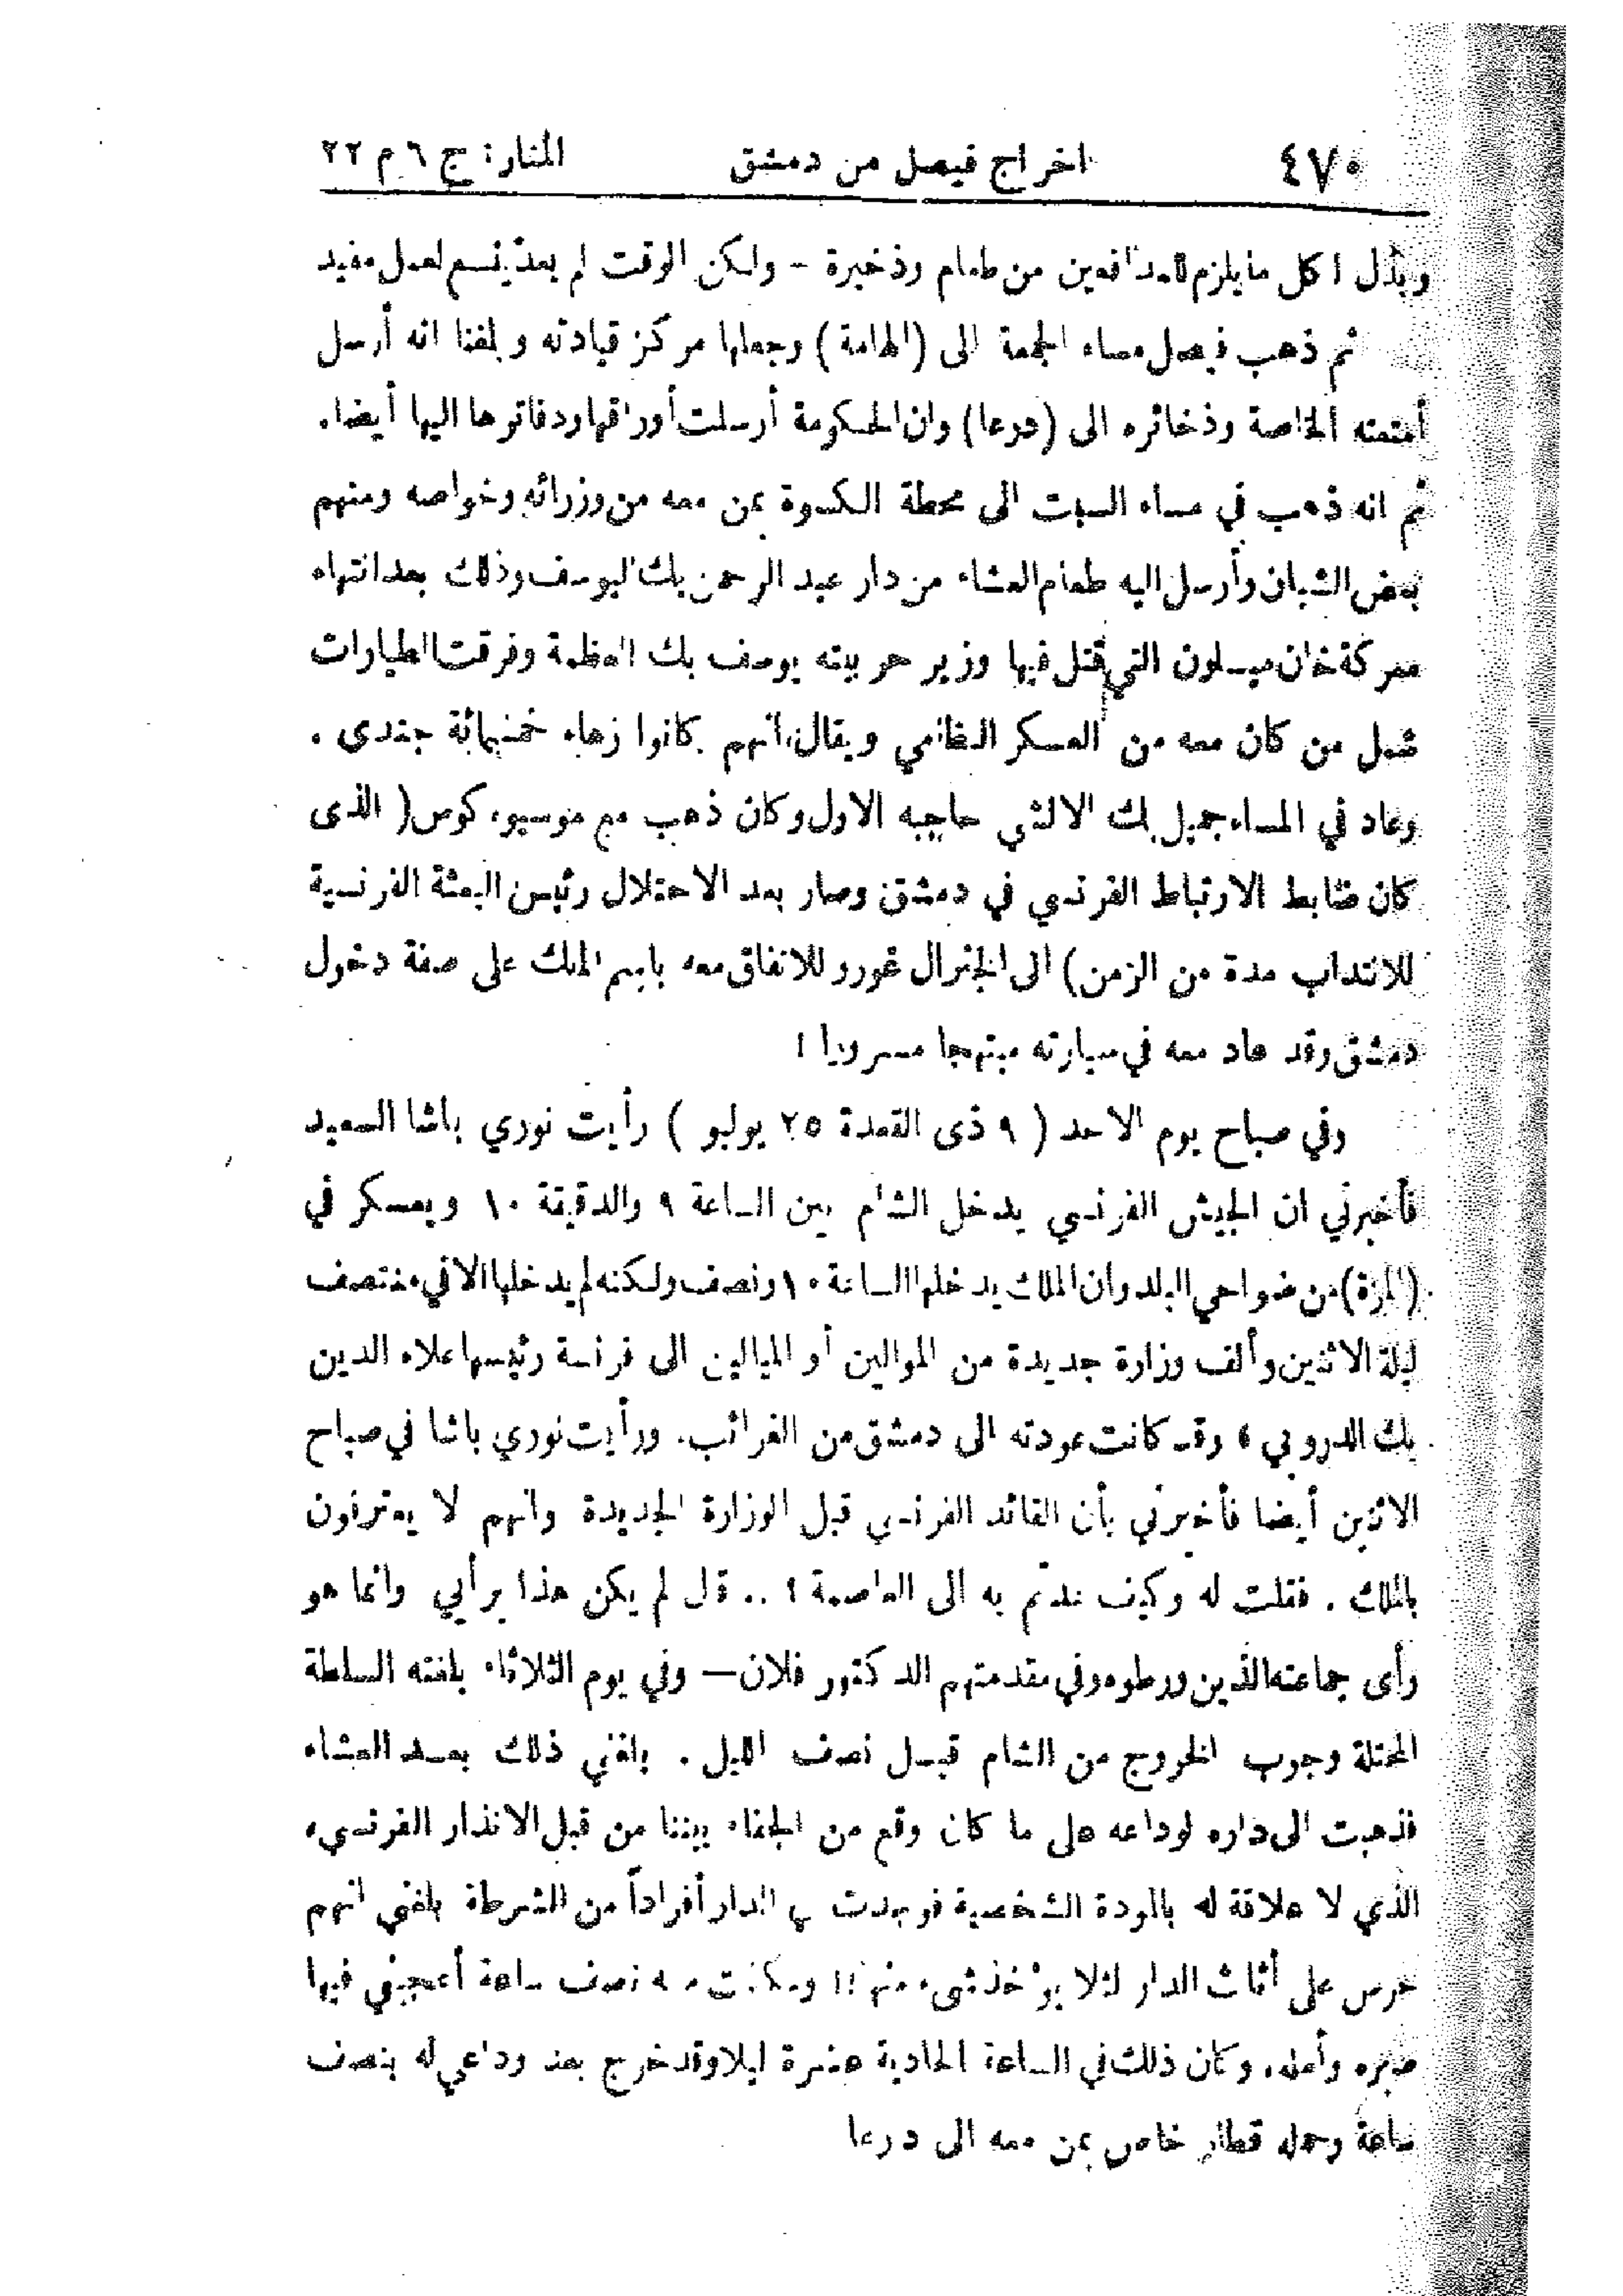 ٤٧٠ اخراج فيصل من دمشق المنار: ج ٦ م ٢٢
وبذل كل ما يلزم للمدافعين من طعام وذخيرة - ولكن الوقت لم يعد يتسع لعمل مفيد
ثم ذهب فيصل مساء الجمعة الى (الهامة) وجعلها مركز قيادته وبلغنا انه أرسل
أمتعته الخاصة وذخائره الى (درعا) وان الحكومة أرسلت أوراقها ودفاترها اليها أيضا.
ثم انه ذهب في مساء السبت الى محطة الكسوة بمن معه من وزرائه وخواصه ومنهم
بعض الشبان وأرسل اليه طعام العشاء من دار عبد الرحمن بك اليوسف وذلك بعد انتهاء
معركة خان ميسلون التي قتل فيها وزير حربيته يوسف بك العظمة وفرقت الطيارات
شمل من كان معه من العسكر النظامي ويقال انهم كانوا زهاء خمسمائة جندى .
وعاد في المساء جميل بك الالشي حاجبه الاول وكان ذهب مع موسيو كوس ( الذى
كان ضابط الارتباط الفرنسي في دمشق وصار بعد الاحتلال رئيس البعثة الفرنسية
للانتداب مدة من الزمن) الى الجنرال غورو للاتفاق معه باسم الملك على صفة دخول
دمشق وقد عاد معه في سيارته مبتهجا مسرورا !
وفي صباح يوم الاحد ( ٩ ذى القعدة ٢٥ يوليو ) رأيت نوري باشا السعيد
فأخبرني ان الجيش الفرنسي يدخل الشام بين الساعة ٩ والدقيقة ١٠ ويعسكر في
(المزة) من ضواحي البلد وان الملك يدخلها الساعة ١٠ ونصف ولكنه لم يدخلها الا في منتصف
ليلة الاثنين وألف وزارة جديدة من الموالين أو الميالين الى فرنسة رئيسها علاء الدين
بك الدروبي ، وقد كانت عودته الى دمشق من الغرائب. ورأيت نوري باشا في صباح
الاثنين أيضا فأخبرني بأن القائد الفرنسي قبل الوزارة الجديدة وانهم لا يعترفون
بالملك . فقلت له وكيف عدتم به الى العاصمة ؟ .. قال لم يكن هذا برأيي وانما هو
رأى جماعته الذين ورطوه وفي مقدمتهم الدكتور فلان — وفي يوم الثلاثاء بلغته السلطة
المحتلة وجوب الخروج من الشام قبل نصف الليل . بلغني ذلك بعد العشاء
فذهبت الى داره لوداعه على ما كان وقع من الجفاء بيننا من قبل الانذار الفرنسي،
الذي لا علاقة له بالمودة الشخصية فوجدت في الدار أفراداً من الشرطة بلغني انهم
حرس على أثاث الدار لئلا يؤخذ شيء منها !! ومكثت معه نصف ساعة أعجبني فيها
صبره وأمله. وكان ذلك في الساعة الحادية عشرة ليلا وقد خرج بعد وداعي له بنصف
ساعة وحمله قطار خاص بمن معه الى درعا